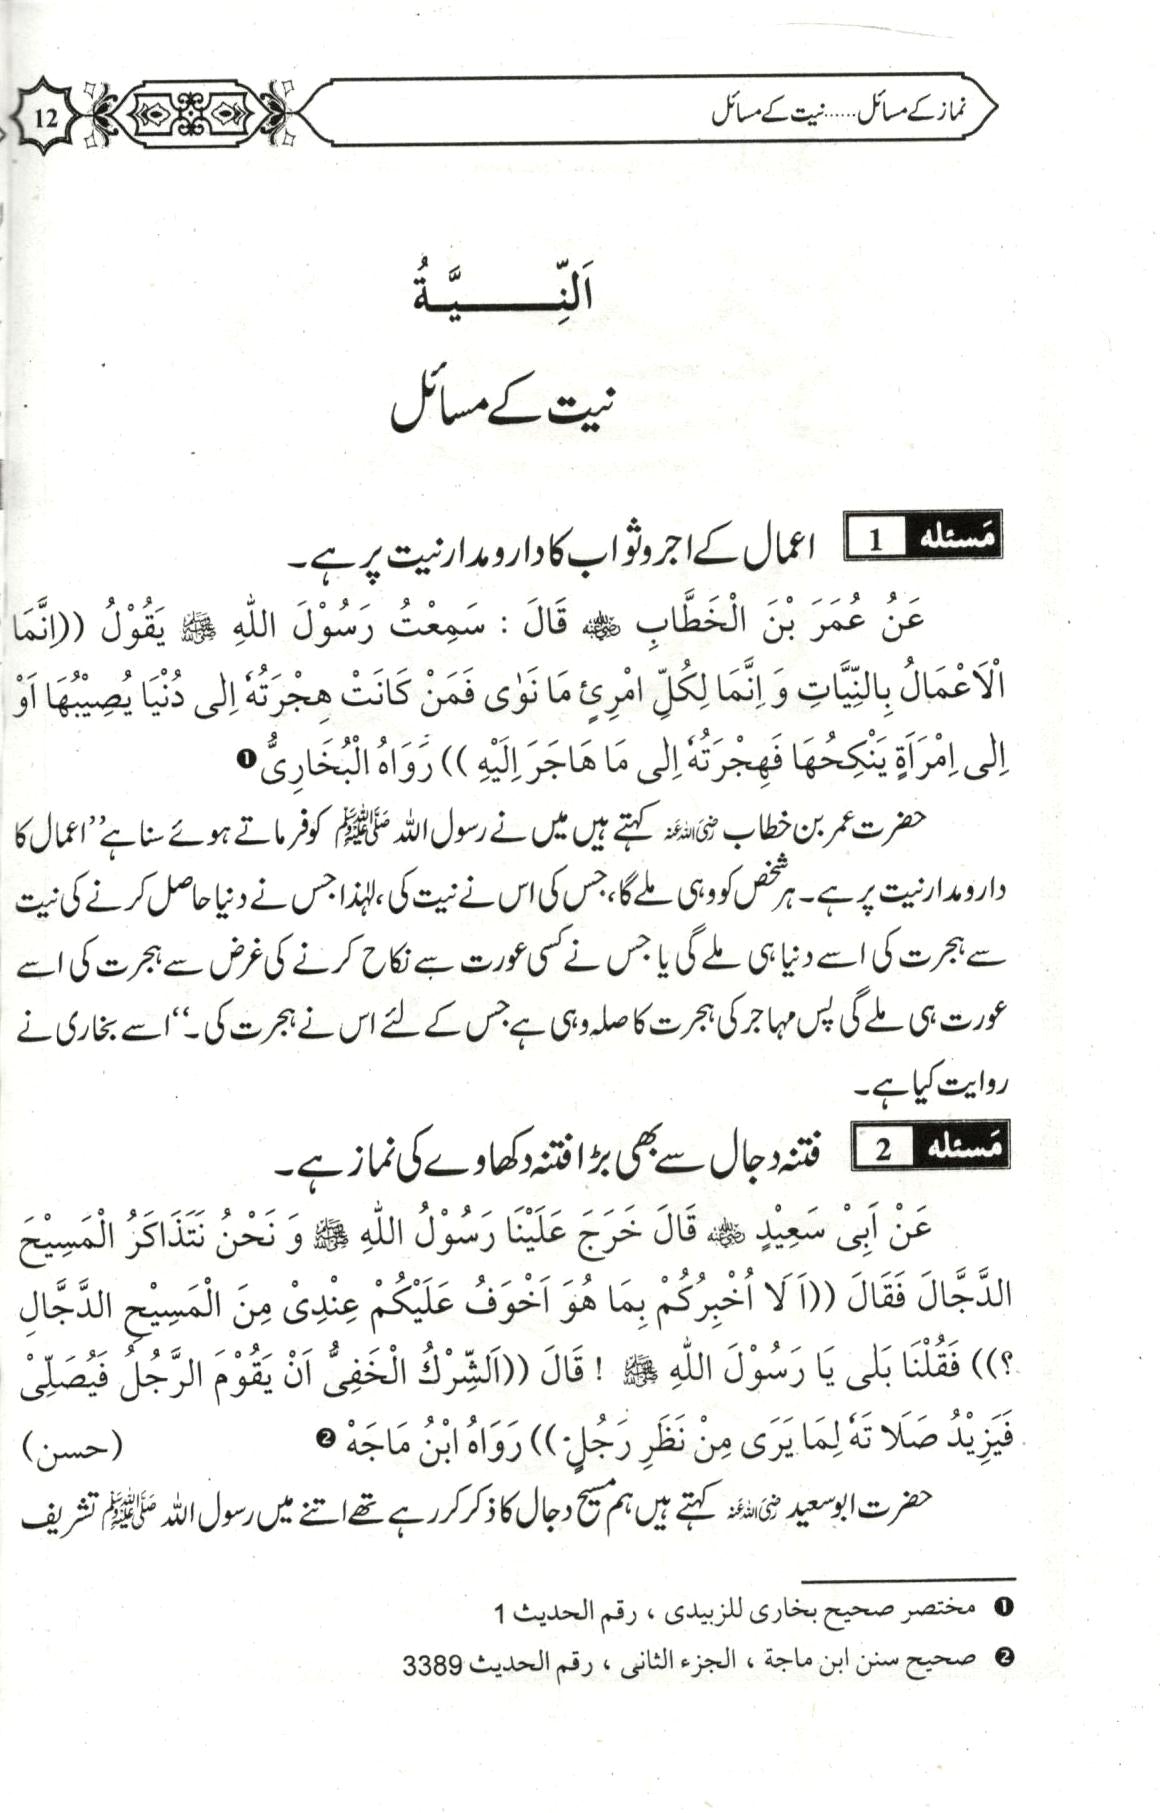 نماز کے مسائل......نیت کے مسائل
12
اَلنِّــــيَّــةُ
نیت کے مسائل
مَسئله 1 اعمال کے اجر و ثواب کا دار و مدار نیت پر ہے۔
عَنُ عُمَرَ بْنَ الْخَطَّابِ ﷛ قَالَ : سَمِعْتُ رَسُوْلَ اللّٰهِ ﷺ يَقُوْلُ ((اِنَّمَا
الْاَعْمَالُ بِالنِّيَّاتِ وَ اِنَّمَا لِكُلِّ امْرِئٍ مَا نَوٰى فَمَنْ كَانَتْ هِجْرَتُهٗ اِلٰى دُنْيَا يُصِيْبُهَا اَوْ
اِلٰى اِمْرَاَةٍ يَنْكِحُهَا فَهِجْرَتُهٗ اِلٰى مَا هَاجَرَ اِلَيْهِ )) رَوَاهُ الْبُخَارِىُّ ❶
حضرت عمر بن خطاب رضی اللہ عنہ کہتے ہیں میں نے رسول اللہ ﷺ کو فرماتے ہوئے سنا ہے ’’اعمال کا
دار و مدار نیت پر ہے۔ ہر شخص کو وہی ملے گا، جس کی اس نے نیت کی، لہٰذا جس نے دنیا حاصل کرنے کی نیت
سے ہجرت کی اسے دنیا ہی ملے گی یا جس نے کسی عورت سے نکاح کرنے کی غرض سے ہجرت کی اسے
عورت ہی ملے گی پس مہاجر کی ہجرت کا صلہ وہی ہے جس کے لئے اس نے ہجرت کی۔‘‘ اسے بخاری نے
روایت کیا ہے۔
مَسئله 2 فتنہ دجال سے بھی بڑا فتنہ دکھاوے کی نماز ہے۔
عَنْ اَبِىْ سَعِيْدٍ ﷛ قَالَ خَرَجَ عَلَيْنَا رَسُوْلُ اللّٰهِ ﷺ وَ نَحْنُ نَتَذَاكَرُ الْمَسِيْحَ
الدَّجَّالَ فَقَالَ ((اَ لَا اُخْبِرُكُمْ بِمَا هُوَ اَخْوَفُ عَلَيْكُمْ عِنْدِىْ مِنَ الْمَسِيْحِ الدَّجَّالِ
؟)) فَقُلْنَا بَلٰى يَا رَسُوْلَ اللّٰهِ ﷺ ! قَالَ ((اَلشِّرْكُ الْخَفِىُّ اَنْ يَقُوْمَ الرَّجُلُ فَيُصَلِّىْ
فَيَزِيْدُ صَلَا تَهٗ لِمَا يَرَى مِنْ نَظَرِ رَجُلٍ )) رَوَاهُ ابْنُ مَاجَهْ ❷ (حسن)
حضرت ابو سعید رضی اللہ عنہ کہتے ہیں ہم مسیح دجال کا ذکر کر رہے تھے اتنے میں رسول اللہ ﷺ تشریف
❶ مختصر صحيح بخارى للزبيدى ، رقم الحديث 1
❷ صحيح سنن ابن ماجة ، الجزء الثانى ، رقم الحديث 3389